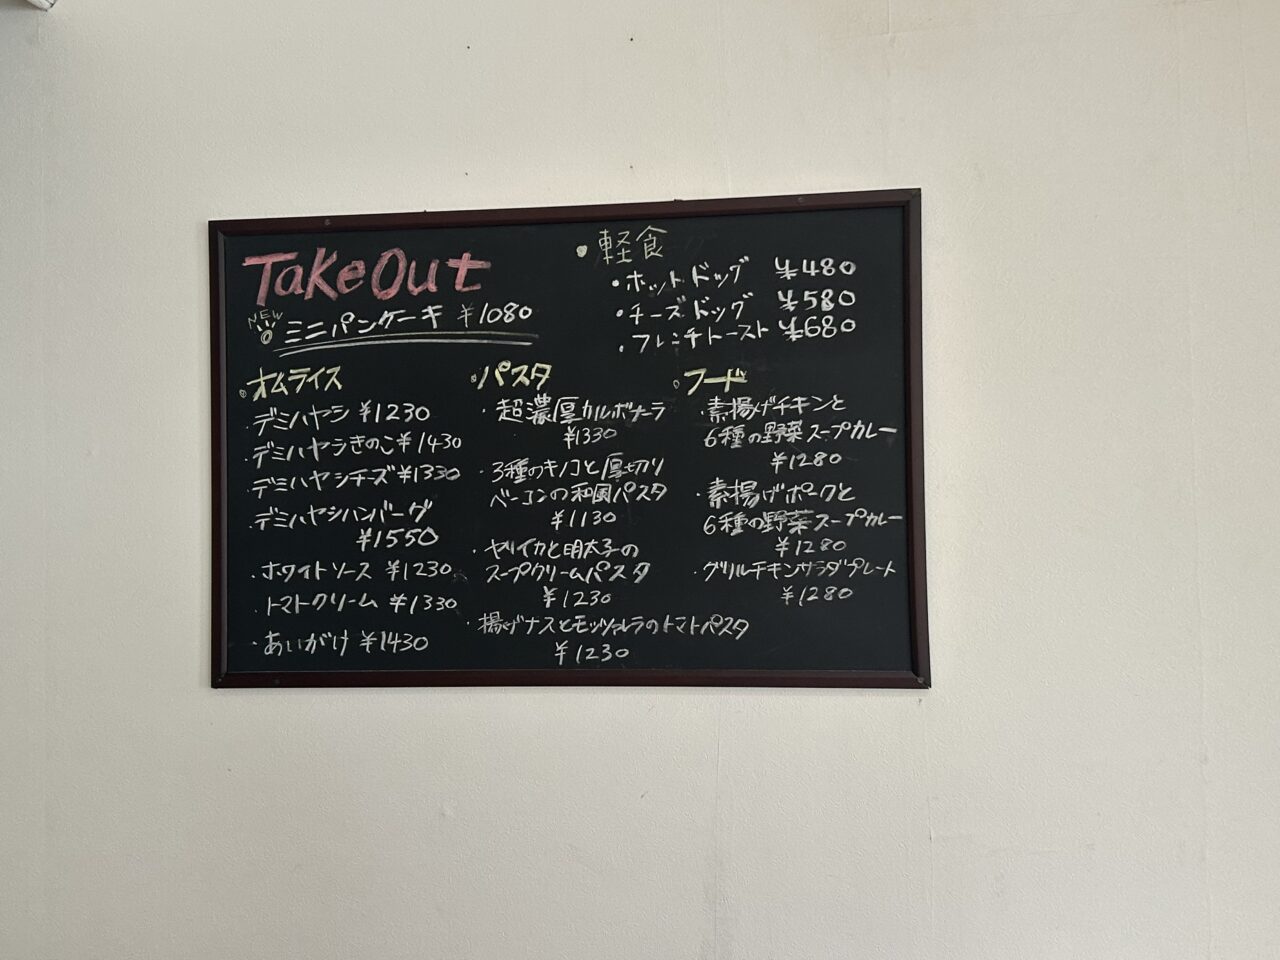 Take Out
NEW
ミニパンケーキ ¥1080
・軽食
・ホットドッグ ¥480
・チーズドッグ ¥580
・フレンチトースト ¥680
・オムライス
・デミハヤシ ¥1230
・デミハヤシきのこ ¥1430
・デミハヤシチーズ ¥1330
・デミハヤシハンバーグ
¥1550
・ホワイトソース ¥1230
・トマトクリーム ¥1330
・あいがけ ¥1430
・パスタ
・超濃厚カルボナーラ
¥1330
・3種のキノコと厚切り
ベーコンの和風パスタ
¥1130
・ヤリイカと明太子の
スープクリームパスタ
¥1230
・揚げナスとモッツァレラのトマトパスタ
¥1230
・フード
・素揚げチキンと
6種の野菜スープカレー
¥1280
・素揚げポークと
6種の野菜スープカレー
¥1280
・グリルチキンサラダプレート
¥1280